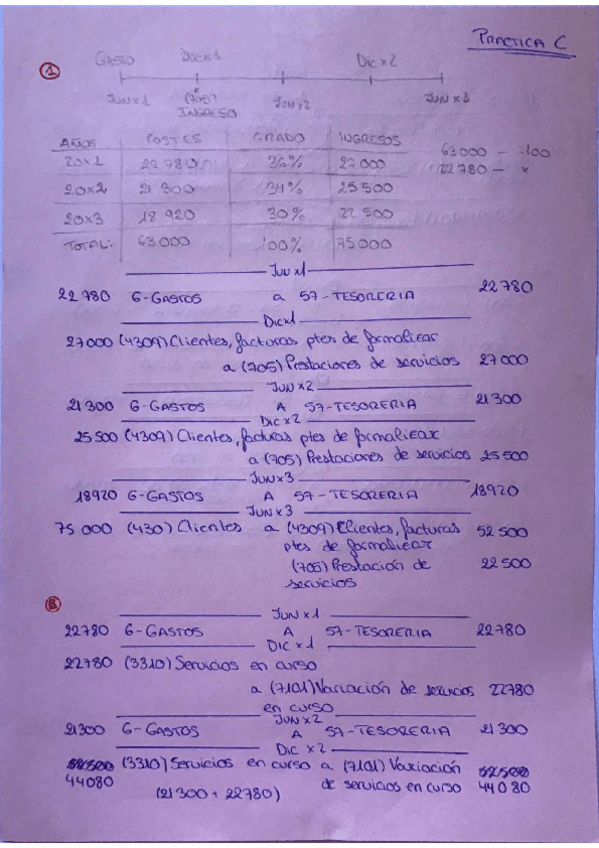 PRACTICA C
①
GASTO Dic x1 Dic x2
JUN x1 (705) INGRESO JUN x2 JUN x3
AÑOS COSTES GRADO INGRESOS
20x1 22 780 36% 27 000
20x2 21 300 34% 25 500
20x3 18 920 30% 22 500
TOTAL: 63 000 100% 75 000
63 000 - 100
22 780 - x
JUN x1
22 780 6-GASTOS a 57-TESORERIA 22 780
Dic x1
27 000 (4309) Clientes, facturas ptes de formalizar
a (705) Prestaciones de servicios 27 000
JUN x2
21 300 6-GASTOS A 57-TESORERIA 21 300
Dic x2
25 500 (4309) Clientes, facturas ptes de formalizar
a (705) Prestaciones de servicios 25 500
JUN x3
18920 6-GASTOS A 57-TESORERIA 18920
JUN x3
75 000 (430) Clientes a (4309) Clientes, facturas 52 500
ptes de formalizar
(705) Prestación de 22 500
servicios
B
JUN x1
22780 6-GASTOS A 57-TESORERIA 22780
DIC x1
22780 (3310) Servicios en curso
a (7101) Variación de servicios 22780
en curso
JUN x2
21300 6-GASTOS A 57-TESORERIA 21 300
DIC x2
(3310) Servicios en curso a (7101) Variación
44080 (21 300 + 22780) de servicios en curso 44080